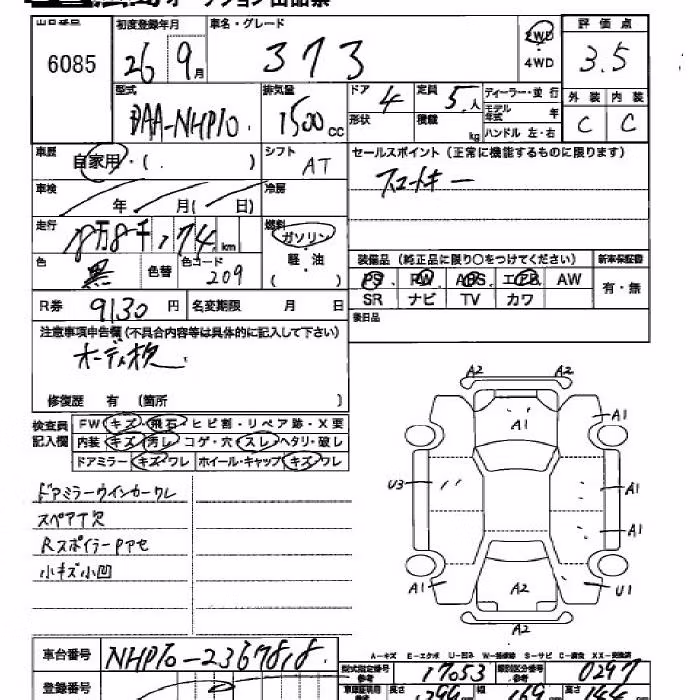 オークション出品票
出品番号
6085
初度登録年月
26年9月
車名・グレード
373
2WD
4WD
評価点
3.5
型式
DAA-NHP10
排気量
1500 cc
ドア
4
形状
定員
5人
積載
kg
ディーラー・並行
モデル年式 年
ハンドル 左・右
外装 内装
C C
車歴
自家用・( )
シフト
AT
セールスポイント (正常に機能するものに限ります)
スマートキー
車検
年 月( 日)
冷房
走行
8万8千,174 km
燃料
ガソリン
軽・油
( )
色
黒
色替
色コード
209
装備品 (純正品に限り○をつけてください)
新車保証書
PS PW ABS エアB AW
有・無
SR ナビ TV カワ
R券 9130 円
名変期限 月 日
後日品
注意事項申告欄 (不具合内容等は具体的に記入して下さい)
オーディオ欠
修復歴 有 (箇所 )
検査員記入欄
FW キズ・飛石・ヒビ割・リペア跡・X要
内装 キズ 汚レ コゲ・穴 スレ ヘタリ・破レ
ドアミラー キズ ワレ ホイール・キャップ キズ ワレ
ドアミラーウインカーワレ
スペアT欠
RスポイラーPアセ
小キズ小凹
A2 A2
A1
A1
U3
A1
A1
A1
A2
U1
A2
A-キズ E-エクボ U-凹み W-補修跡 S-サビ C-腐食 XX-交換済
車台番号
NHP10-2367818
型式指定番号
参考
17053
類別区分番号
参考
0297
登録番号
長さ
399
幅
169
高さ